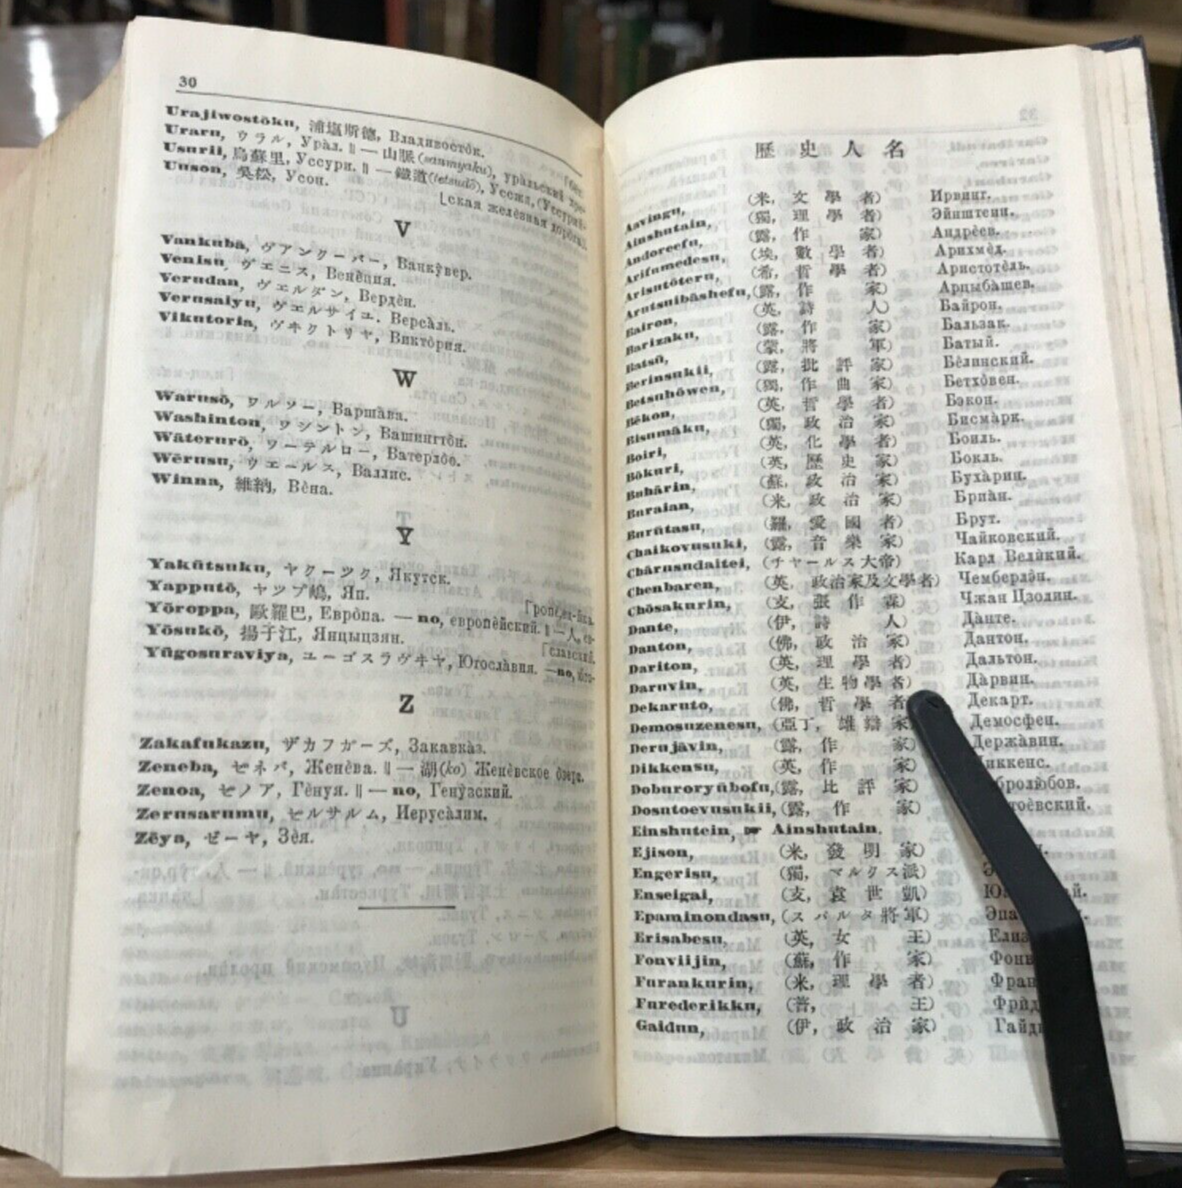 30
Urajiwostōku, 浦塩斯德, Владивостòк.
Uraru, ウラル, Урàл. ‖ — 山脈 (sanmyaku), урàльский хре-
Usurii, 烏蘇里, Уссури. ‖ — 鐵道 (tetsudō), Уссжд, (Уссурий-
Uuson, 吳淞, Усон. [ская желéзная дорòга).
V
Vankubā, ヴアンクーバー, Ванкỳвер.
Venisu, ヴエニス, Венèция.
Verudan, ヴエルダン, Вердèн.
Verusaiyu, ヴエルサイユ. Версàль.
Vikutoria, ヴヰクトリヤ, Виктòрия.
W
Warusō, ワルソー, Варшàва.
Washinton, ワシントン, Вашингтòн.
Wāterurō, ワーテルロー, Ватерлòо.
Wērusu, ウエールス, Валлис.
Winna, 維納, Вèна.
Y
Yakūtsuku, ヤクーツク, Якутск.
Yapputō, ヤツプ嶋, Яп.
Yōroppa, 歐羅巴, Еврòпа. — no, европèйский. ‖ — 人,
Yōsukō, 揚子江, Янцыцзян. [славский.
Yūgosuraviya, ユーゴスラヴキヤ, Югослàвия. —no,
Z
Zakafukazu, ザカフカーズ, Закавкàз.
Zeneba, ゼネバ, Женèва. ‖ — 湖 (ko) Женèвское òзеро.
Zenoa, ゼノア, Гèнуя. ‖ — no, Генỳзский.
Zerusarumu, セルサルム, Иерусàлим.
Zēya, ゼーヤ, Зèя.
歷史人名
Aavingu, (米, 文學者) Ирвинг.
Ainshutain, (獨, 理學者) Эйнштейн.
Andoreefu, (露, 作家) Андрèев.
Arifumedesu, (埃, 數學者) Арихмèд.
Arisutōteru, (希, 哲學者) Аристотèль.
Arutsuibāshefu, (露, 作家) Арцыбàшев.
Bairon, (英, 詩人) Байрон.
Barizaku, (露, 作家) Бальзак.
Batsū, (蒙, 將軍) Батый.
Berinsukii, (露, 批評家) Бèлинский.
Betsuhōwen, (獨, 作曲家) Бетхòвен.
Bēkon, (英, 哲學者) Бэкон.
Bisumāku, (獨, 政治家) Бисмàрк.
Boiri, (英, 化學者) Бойль.
Bōkuri, (英, 歷史家) Бокль.
Buhārin, (蘇, 政治家) Бухàрин.
Buraian, (米, 政治家) Бриàн.
Burūtasu, (羅, 愛國者) Брут.
Chaikovusuki, (露, 音樂家) Чайковский.
Chārusndaitei, (チャールス大帝) Карл Велùкий.
Chenbaren, (英, 政治家及文學者) Чемберлэн.
Chōsakurin, (支, 張作霖) Чжан Цзолин.
Dante, (伊, 詩人) Дàнте.
Danton, (佛, 政治家) Дантон.
Dariton, (英, 理學者) Дальтон.
Daruvin, (英, 生物學者) Дàрвин.
Dekaruto, (佛, 哲學者) Декарт.
Demosuzenesu, (亞丁, 雄辯家) Демосфен.
Derujāvin, (露, 作家) Держàвин.
Dikkensu, (英, 作家) иккенс.
Doburoryūbofu, (露, 比評家) бролю̀бов.
Dosutoevusukii, (露, 作家) тоèвский.
Einshutein, or Ainshutain.
Ejison, (米, 發明家)
Engerisu, (獨, マルクス派)
Enseigai, (支, 袁世凱) Ю ай.
Epaminondasu, (スパルタ將軍) Эпа
Erisabesu, (英, 女王) Елиз
Fonviijin, (蘇, 作家) Фонв
Furankurin, (米, 理學者) Фран
Furederikku, (普, 王) Фрùд
Gaidun, (伊, 政治家) Гайд